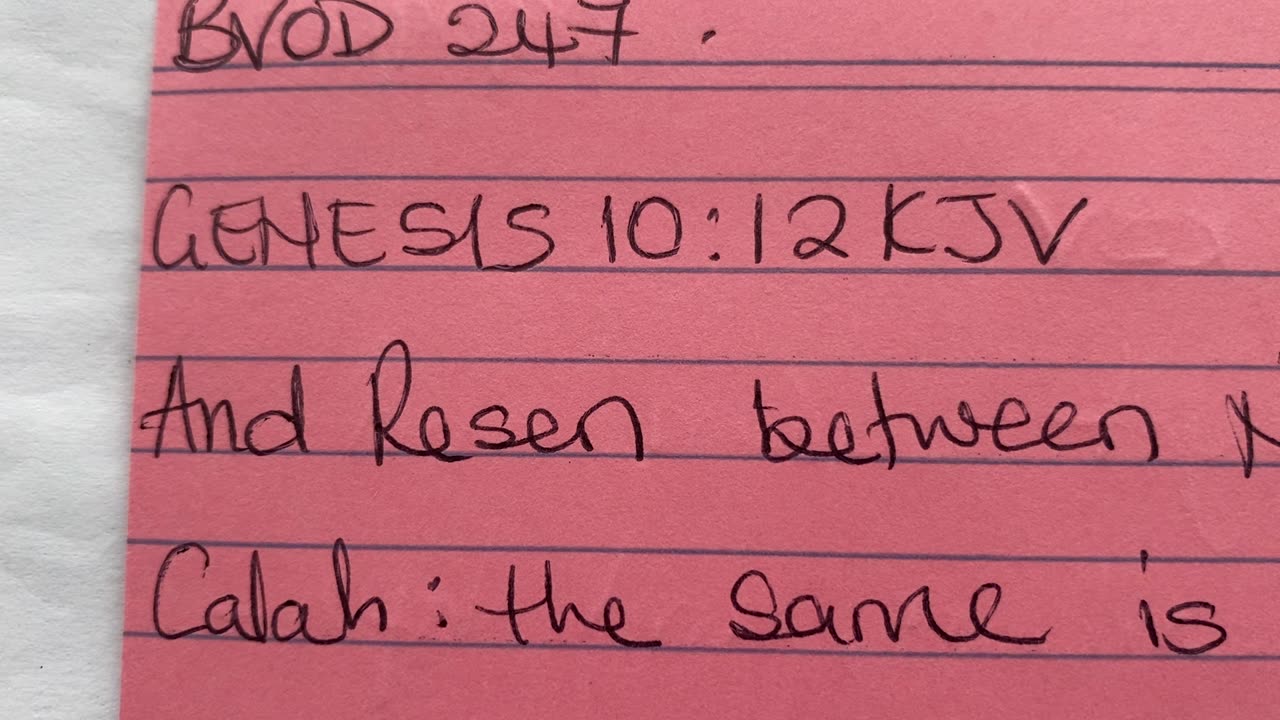 BVOD 247.
GENESIS 10:12 KJV
And Resen between
Calah: the same is